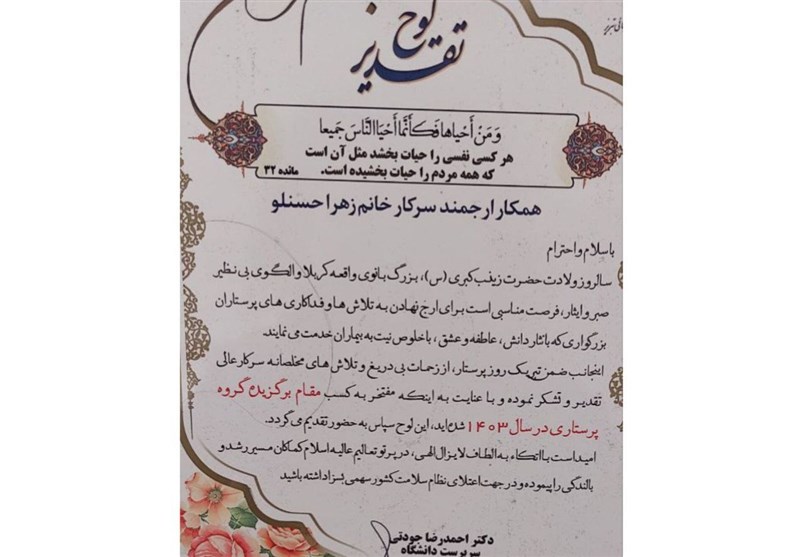 لوح
تقدیر
وَ مَنْ أَحْیاها فَکَأَنَّما أَحْیَا النَّاسَ جَمیعا
هر کسی نفسی را حیات بخشد مثل آن است
که همه مردم را حیات بخشیده است. مائده ۳۲
همکار ارجمند سرکار خانم زهرا حسنلو
باسلام و احترام
سالروز ولادت حضرت زینب کبری (س)، بزرگ بانوی واقعه کربلا و الگوی بی نظیر
صبر و ایثار، فرصت مناسبی است برای ارج نهادن به تلاش ها و فداکاری های پرستاران
بزرگواری که با نثار دانش، عاطفه و عشق، با خلوص نیت به بیماران خدمت می نمایند.
اینجانب ضمن تبریک روز پرستار، از زحمات بی دریغ و تلاش های مخلصانه سرکارعالی
تقدیر و تشکر نموده و با عنایت به اینکه مفتخر به کسب مقام برگزیده گروه
پرستاری در سال ۱۴۰۳ شده اید، این لوح سپاس به حضور تقدیم می گردد.
امید است با اتکاء به الطاف لایزال الهی، در پرتو تعالیم عالیه اسلام کماکان مسیر رشد و
بالندگی را پیموده و در جهت اعتلای نظام سلامت کشور سهمی بسزا داشته باشید
دکتر احمدرضا جودتی
سرپرست دانشگاه